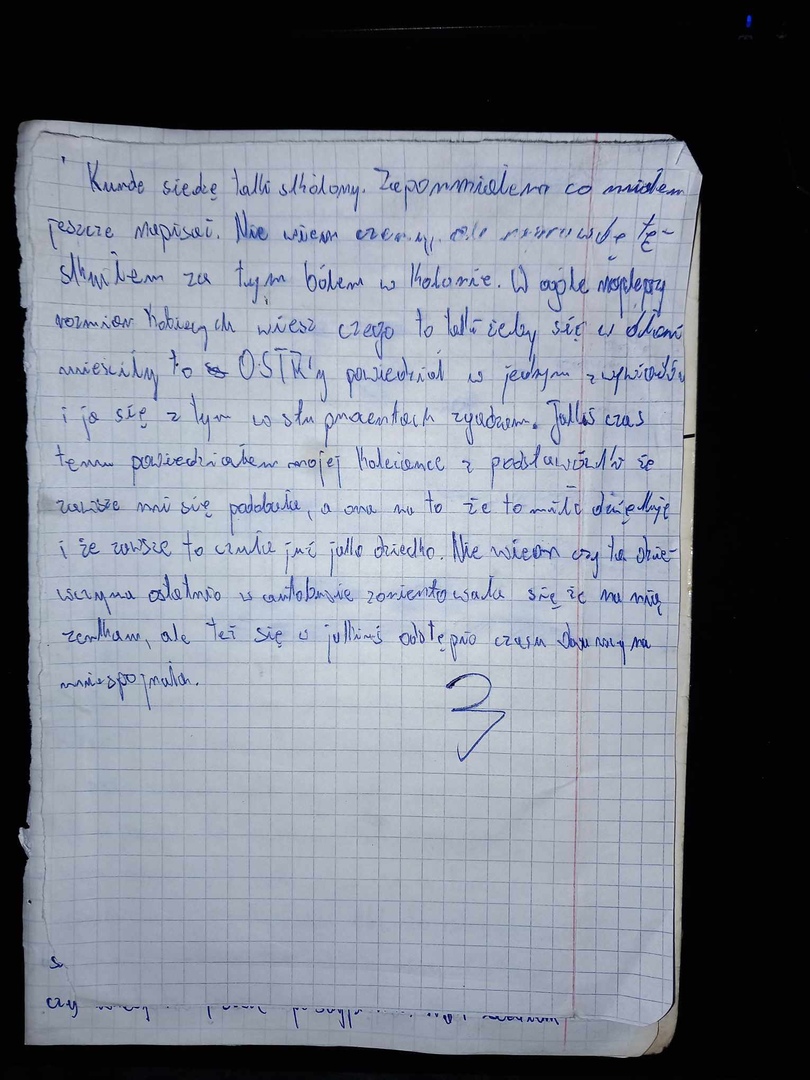 Kurde siedzę taki skołomy. Zapomniałem co miałem
jeszcze napisać. Nie wiem czemu, ale naprawdę tę-
skniłem za tym bólem w kolanie. W ogóle najlepszy
rozmiar kobiecych wiesz czego to taki żeby się w dłoni
mieściły to O.S.T.R'y powiedział w jednym z wywiadów
i ja się z tym w stu procentach zgadzam. Jakiś czas
temu powiedziałem mojej koleżance z podstawówki że
zawsze mi się podobała, a ona na to że to miłe dziękuję
i że zawsze to czuła już jako dziecko. Nie wiem czy ta dzie-
wczyna ostatnio w autobusie zorientowała się że na nią
zerkam, ale też się w jakimś odstępie czasu na
mnie spojrzała.
3